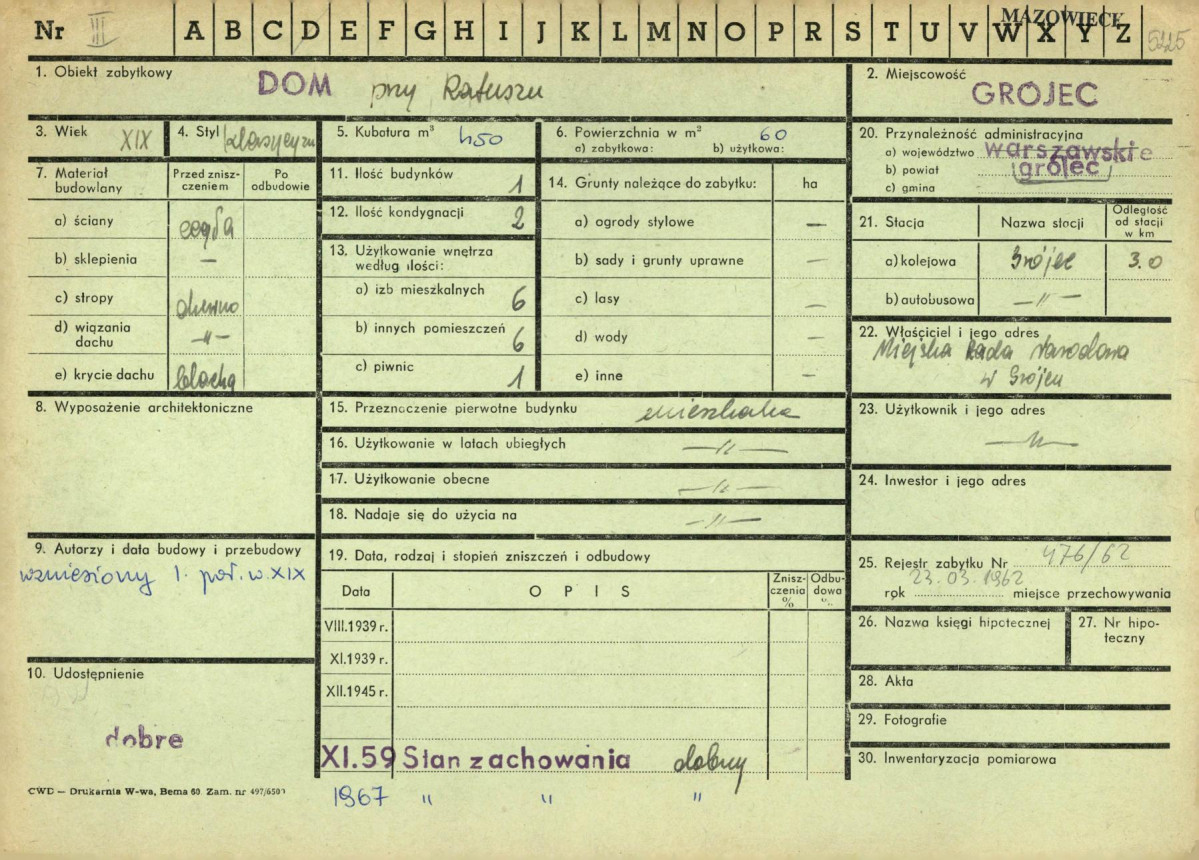 Nr III A B C D E F G H I J K L M N O P R S T U V W X Y Z
MAZOWIECK
1. Obiekt zabytkowy
DOM przy Ratuszu
2. Miejscowość
GRÓJEC
3. Wiek XIX
4. Styl klasycyzm
5. Kubatura m³ 450
6. Powierzchnia w m² 60
a) zabytkowa: b) użytkowa:
7. Materiał budowlany
Przed zniszczeniem
Po odbudowie
a) ściany cegła
b) sklepienia —
c) stropy drewno
d) wiązania dachu —"—
e) krycie dachu blacha
8. Wyposażenie architektoniczne
9. Autorzy i data budowy i przebudowy
wzniesiony 1. poł. w. XIX
10. Udostępnienie
dobre
11. Ilość budynków 1
12. Ilość kondygnacji 2
13. Użytkowanie wnętrza według ilości:
a) izb mieszkalnych 6
b) innych pomieszczeń 6
c) piwnic 1
14. Grunty należące do zabytku: ha
a) ogrody stylowe —
b) sady i grunty uprawne —
c) lasy —
d) wody —
e) inne —
15. Przeznaczenie pierwotne budynku mieszkalne
16. Użytkowanie w latach ubiegłych —"—
17. Użytkowanie obecne —"—
18. Nadaje się do użycia na —"—
19. Data, rodzaj i stopień zniszczeń i odbudowy
Data OPIS Zniszczenia % Odbudowa %
VIII.1939 r.
XI.1939 r.
XII.1945 r.
XI.59 Stan zachowania dobry
1967 " " "
20. Przynależność administracyjna
a) województwo warszawskie
b) powiat grójec
c) gmina
21. Stacja Nazwa stacji Odległość od stacji w km
a) kolejowa Grójec 3.0
b) autobusowa —"—
22. Właściciel i jego adres
Miejska Rada Narodowa
w Grójcu
23. Użytkownik i jego adres
—"—
24. Inwestor i jego adres
25. Rejestr zabytku Nr 476/62
rok 23.03.1962 miejsce przechowywania
26. Nazwa księgi hipotecznej
27. Nr hipoteczny
28. Akta
29. Fotografie
30. Inwentaryzacja pomiarowa
CWD — Drukarnia W-wa, Bema 60. Zam. nr 497/650